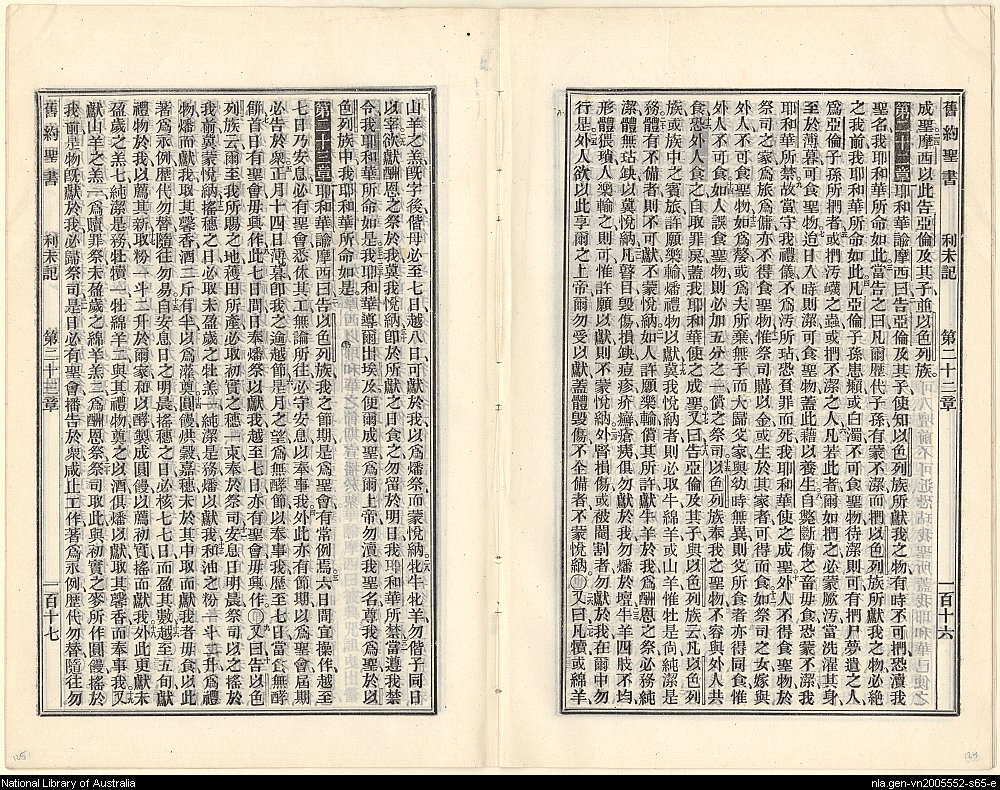 舊約聖書 利未記 第二十二章 一百十六
成聖摩西以此告亞倫及其子並以色列族
第二十二章耶和華諭摩西曰告亞倫及其子使知以色列族所獻我之物有時不可捫恐瀆我
聖名我耶和華所命如此當告之曰凡爾歷代子孫有蒙不潔而捫以色列族所獻我之物必絕
之我前我耶和華所命如此凡亞倫子孫患癩或白濁不可食聖物待潔則可有捫尸夢遺之人
爲亞倫子孫所捫者或捫污衊之蟲或捫不潔之人凡若此者爾如捫之必蒙厥污當洗濯其身
至於薄暮可食聖物迨日入時則潔可食聖物蓋此藉以養生自斃斷傷之畜毋食恐蒙不潔我
耶和華所禁故當守我禮儀不爲污所玷恐負罪而死我耶和華使之成聖外人不得食聖物於
祭司之家爲旅爲傭亦不得食聖物惟祭司購以金或生於其家者可得而食如祭司之女嫁與
外人不可食聖物如爲嫠或爲夫所棄無子而大歸父家與幼時無異則父所食者亦得同食惟
外人不可食如人誤食聖物則必加五分之一償之祭司以色列族奉我之聖物不容與外人共
食恐外人食之自取罪戾蓋我耶和華使之成聖又曰告亞倫及其子與以色列族云凡以色列
族或族中之賓旅許願樂輸燔禮物以獻冀我悅納者則必取牛綿羊或山羊惟牡是尙純潔是
務體有不備者則不可獻不蒙悅納如人許願樂輸償其所許獻牛羊於我爲酬恩之祭必務純
潔體無玷缺以冀悅納凡瞽目毀傷損缺瘟疹疥癬瘡痍俱勿獻於我勿燔於壇牛羊四肢不均
形體猥瑣人樂輸之則可惟許願以獻則不蒙悅納外腎損傷或被閹割者勿獻於我在爾中勿
行是外人欲以此享爾之上帝爾勿受以獻蓋體毀傷不全備者不蒙悅納又曰凡犢或綿羊
山羊之羔旣字後偕母必至七日越八日可獻於我以爲燔祭而蒙悅納牝牛牝羊勿偕子同日
以宰欲獻酬恩之祭於我冀我悅納卽於所獻之日食之勿留於明日我耶和華所禁當遵我禁
令我耶和華所命如是我耶和華導爾出埃及便爾成聖爲爾上帝勿瀆我聖名尊我爲聖於以
色列族中我耶和華所命如是
第二十三章耶和華諭摩西曰告以色列族我之節期是爲聖會有常例焉六日間宜操作越至
七日乃安息必有聖會悉休其工無論所往必守安息以奉事我外此亦有節期以爲聖會屆期
必告於衆正月十四日薄暮卽我之逾越節是月之望爲無酵節以奉事我歷至七日當食無酵
餅首日有聖會毋興作此七日間日奉燔祭以獻我越至七日亦有聖會毋興作又曰告以色
列族云爾至我所賜之地穫田所產必取初實之穗一束奉於祭司安息日明晨祭司以之搖於
我前冀蒙悅納搖穗之日必取未盈歲之牡羔一純潔是務燔以獻我和油之粉一斗二升爲禮
物燔而獻我取其馨香酒三斤有半以爲灌奠圓饅烘穀嘉穗未於其中取而獻我者毋食以此
著爲永例歷代勿替隨往勿易自安息日之明晨搖穗之日必核七七日而盈其數越至五旬獻
禮物於我以薦其新取粉一斗二升於爾家和以酵製成圓饅以薦初實搖而獻我外此更獻未
盈歲之羔七純潔是務牡犢一牡綿羊二與其禮物奠之以酒俱燔以獻取其馨香而奉事我又
獻山羊之羔一爲贖罪祭未盈歲之綿羊羔二爲酬恩祭祭司取此與初實之麥所作圓饅搖於
我前是物旣獻於我必歸祭司是日必有聖會播告於衆咸止工作著爲永例歷代勿替隨往勿
舊約聖書 利未記 第二十三章 一百十七
National Library of Australia
nla.gen-vn2005552-s65-e